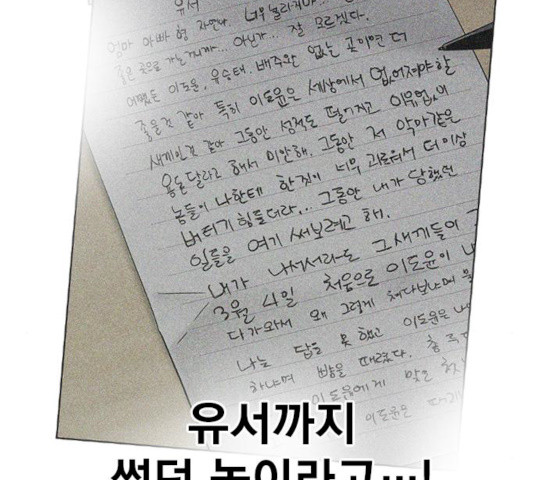 유서
엄마 아빠 형 자연아 너무 놀라지마..
좋은 곳으로 가는거니까... 아닌가.. 잘 모르겠다.
어쨌든 이도윤, 우승태, 배주환 없는 곳이면 더
좋을것 같아 특히 이도윤은 세상에서 없어져야할
새끼인것 같아 그동안 성적도 떨어지고 이유없이
용돈달라고 해서 미안해. 그동안 저 악마같은
놈들이 나한테 한짓이 너무 괴로워서 더이상
버티기 힘들더라... 그동안 내가 당했던
일들을 여기 써보려고 해.
내가 나서서라도 그새끼들이
3월 4일 처음으로 이도윤이
다가와서 왜 그렇게 쳐다보냐며
나는 답을 못했고 이도윤은
하냐며 뺨을 때렸다.
이도윤에게 맞은
이도윤은
유서까지
썼던 놈이라고…!